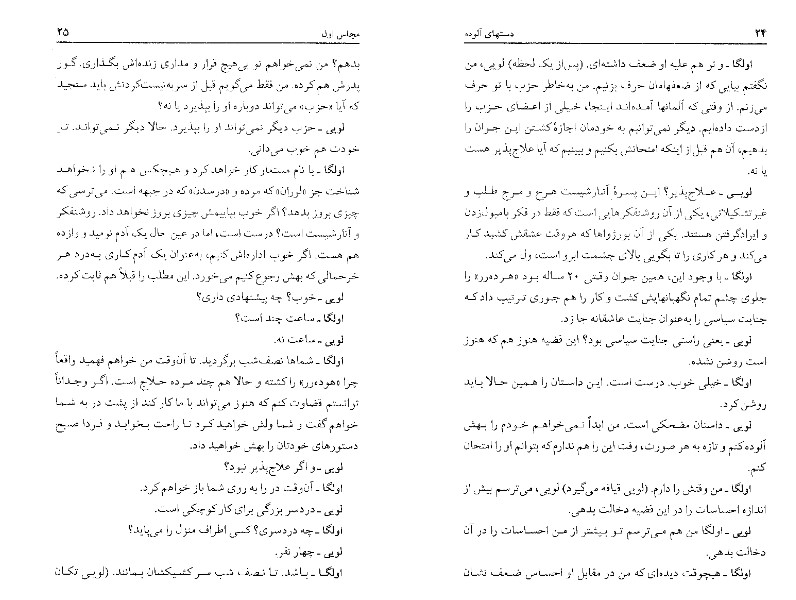 ۲۴
دستهای آلوده
اولگا ـ و تو هم علیه او ضعف داشته‌ای. (پس از یک لحظه) لویی، من
نگفتم بیایی که از ضعفهامان حرف بزنیم. من به‌خاطر حزب با تو حرف
می‌زنم. از وقتی که آلمانها آمده‌اند اینجا، خیلی از اعضای حزب را
از دست داده‌ایم. دیگر نمی‌توانیم به خودمان اجازهٔ کشتن این جوان را
بدهیم، آن هم قبل از اینکه امتحانش بکنیم و ببینیم که آیا علاج‌پذیر هست
یا نه.
لویی ـ علاج‌پذیر؟ این پسرهٔ آنارشیست هرج و مرج طلب و
غیرتشکیلاتی، یکی از آن روشنفکرهایی است که فقط در فکر بامبول‌زدن
و ایرادگرفتن هستند. یکی از آن بورژواها که هر وقت عشقش کشید کار
می‌کند و هر کاری را تا بگویی بالای چشمت ابرو است، ول می‌کند.
اولگا ـ با وجود این، همین جوان وقتی ۲۰ ساله بود «هوده‌رر» را
جلوی چشم تمام نگهبانهایش کشت و کار را هم جوری ترتیب داد که
جنایت سیاسی را به‌عنوان جنایت عاشقانه جا زد.
لویی ـ یعنی راستی جنایت سیاسی بود؟ این قضیه هنوز هم که هنوز
است روشن نشده.
اولگا ـ خیلی خوب. درست است. این داستان را همین حالا باید
روشن کرد.
لویی ـ داستان مضحکی است. من ابداً نمی‌خواهم خودم را بهش
آلوده کنم و تازه به هر صورت، وقت این را هم ندارم که بتوانم او را امتحان
کنم.
اولگا ـ من وقتش را دارم. (لویی قیافه می‌گیرد) لویی، می‌ترسم بیش از
اندازه احساسات را در این قضیه دخالت بدهی.
لویی ـ اولگا من هم می‌ترسم تو بیشتر از من احساسات را در آن
دخالت بدهی.
اولگا ـ هیچوقت دیده‌ای که من در مقابل از احساس ضعف نشان
مجلس اول
۲۵
بدهم؟ من نمی‌خواهم تو بی‌هیچ قرار و مداری زنده‌اش بگذاری. گور
پدرش هم کرده. من فقط می‌گویم قبل از سر به نیست کردنش باید سنجید
که آیا «حزب» می‌تواند دوباره او را بپذیرد یا نه؟
لویی ـ حزب دیگر نمی‌تواند او را بپذیرد. حالا دیگر نمی‌تواند. تو
خودت هم خوب می‌دانی.
اولگا ـ با نام مستعار کار خواهد کرد و هیچکس هم او را نخواهد
شناخت جز «لوران» که مرده و «درسدن» که در جبهه است. می‌ترسی که
چیزی بروز بدهد؟ اگر خوب بپاییمش چیزی بروز نخواهد داد. روشنفکر
و آنارشیست است؟ درست است، اما در عین حال یک آدم نومید و وازده
هم هست. اگر خوب اداره‌اش کنیم، به‌عنوان یک آدم کاری به‌درد هر
خرحمالی که بهش رجوع کنیم می‌خورد. این مطلب را قبلاً هم ثابت کرده.
لویی ـ خوب؟ چه پیشنهادی داری؟
اولگا ـ ساعت چند است؟
لویی ـ ساعت نه.
اولگا ـ شماها نصف‌شب برگردید. تا آن‌وقت من خواهم فهمید واقعاً
چرا «هوده‌رر» را کشته و حالا هم چند مرده حلاج است. اگر وجداناً
توانستم قضاوت کنم که هنوز می‌تواند با ما کار کند از پشت در به شما
خواهم گفت و شما ولش خواهید کرد تا راحت بخوابد و فردا صبح
دستورهای خودتان را بهش خواهید داد.
لویی ـ و اگر علاج‌پذیر نبود؟
اولگا ـ آن‌وقت در را به روی شما باز خواهم کرد.
لویی ـ دردسر بزرگی برای کار کوچکی است.
اولگا ـ چه دردسری؟ کسی اطراف منزل را می‌پاید؟
لویی ـ چهار نفر.
اولگا ـ باشد. تا نصف‌شب سر کشیکشان بمانند. (لویی تکان